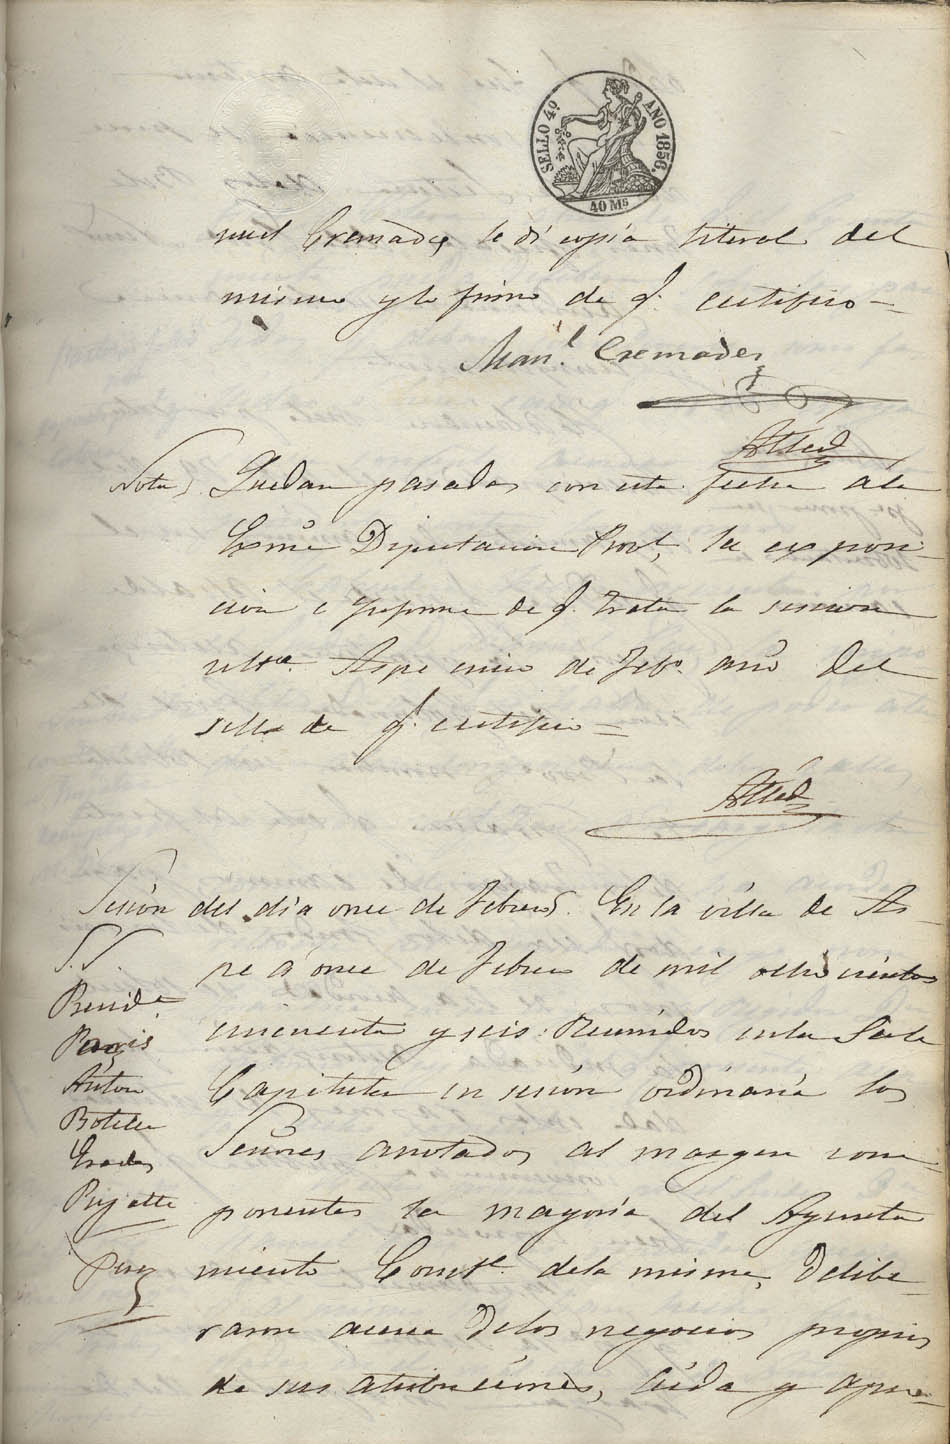 SELLO 4º AÑO 1856.
40 Ms
nuel Cremades le di copia literal del
mismo y lo firmo de q. certifico =
Man.l Cremades
Nota) Quedan pasadas con esta fecha á la
Exma Diputacion Prov.l, la exposi-
cion e ynforme de q. trata la sesion
ultª. Aspe cinco de Febº. año del
sello de q. certifico =
Sesión del día once de Febrero. En la villa de As-
pe á once de Febrero de mil ochocientos
cincuenta y seis: Reunidos en la Sala
Capitular en sesión ordinaria los
Señores anotados al margen com-
ponentes la mayoría del Ayunta
miento Const.l de la misma, Delibe-
raron acerca de los negocios propios
de sus atribuciones, leída y apro-
S.S.
Presid.e
Antón
Botella
Pérez